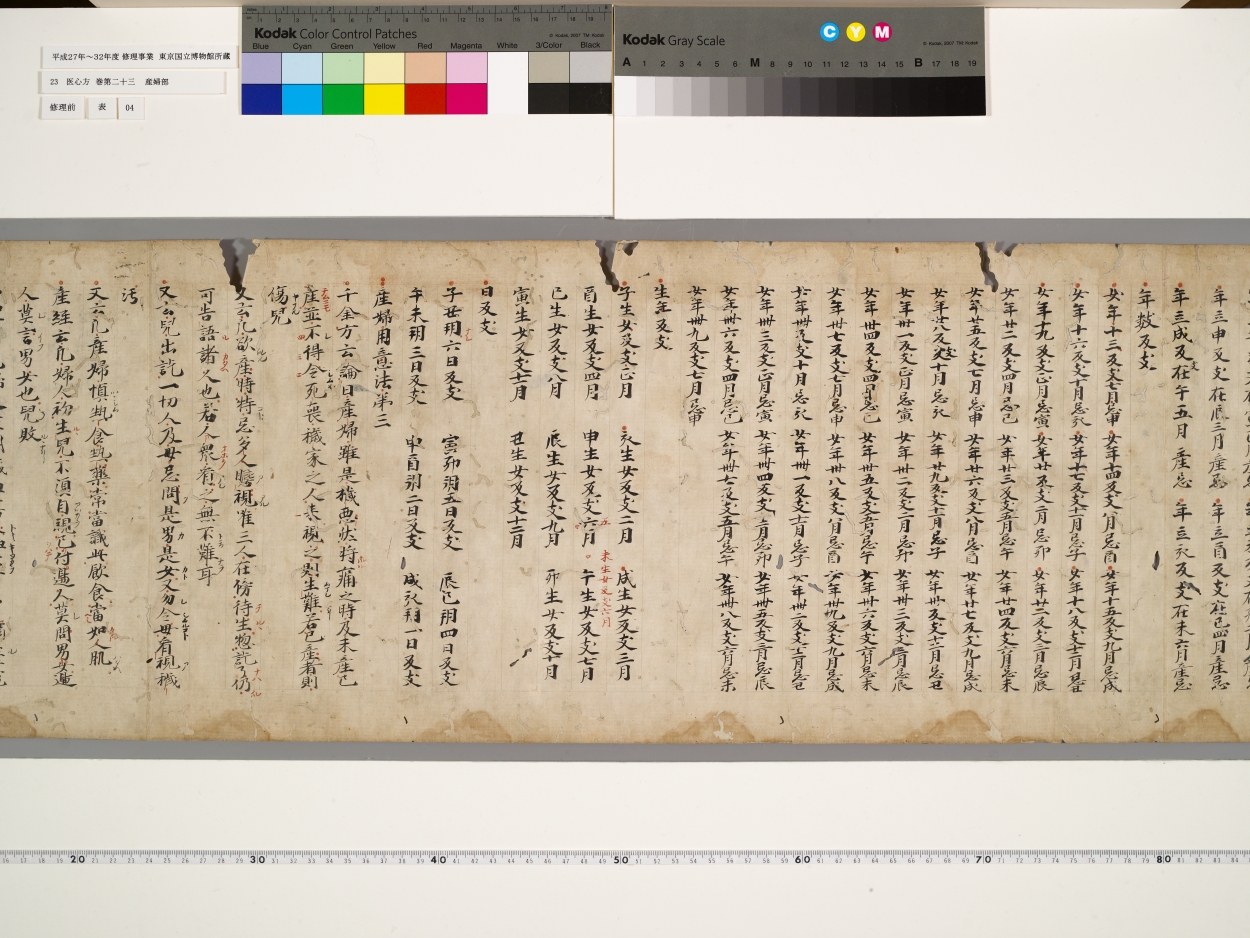 平成27年~32年度 修理事業 東京国立博物館所蔵
23 医心方 巻第二十三 産婦部
修理前 表 04
Kodak Color Control Patches
© Kodak, 2007 TM: Kodak
Blue Cyan Green Yellow Red Magenta White 3/Color Black
Kodak Gray Scale
C Y M
© Kodak, 2007 TM: Kodak
A 1 2 3 4 5 6 M 8 9 10 11 12 13 14 15 B 17 18 19
年立申反支在辰三月産忌 年立酉反支在巳四月産忌
年立戌反支在午五月産忌 年立亥反支在未六月産忌
年数反支
女年十三反支七月忌申 女年十四反支八月忌酉 女年十五反支九月忌戌
女年十六反支十月忌亥 女年十七反支十一月忌子 女年十八反支十二月忌丑
女年十九反支正月忌寅 女年廿反支二月忌卯 女年廿一反支三月忌辰
女年廿二反支四月忌巳 女年廿三反支五月忌午 女年廿四反支六月忌未
女年廿五反支七月忌申 女年廿六反支八月忌酉 女年廿七反支九月忌戌
女年廿八反支十月忌亥 女年廿九反支十一月忌子 女年卅反支十二月忌丑
女年卅一反支正月忌寅 女年卅二反支二月忌卯 女年卅三反支三月忌辰
女年卅四反支四月忌巳 女年卅五反支五月忌午 女年卅六反支六月忌未
女年卅七反支七月忌申 女年卅八反支八月忌酉 女年卅九反支九月忌戌
女年卌反支十月忌亥 女年卌一反支十一月忌子 女年卌二反支十二月忌丑
女年卌三反支正月忌寅 女年卌四反支二月忌卯 女年卌五反支三月忌辰
女年卌六反支四月忌巳 女年卌七反支五月忌午 女年卌八反支六月忌未
女年卌九反支七月忌申
生年反支
子生女反支正月 亥生女反支二月 戌生女反支三月
酉生女反支四月 申生女反支五月 未生女反支六月 午生女反支七月
巳生女反支八月 辰生女反支九月 卯生女反支十月
寅生女反支十一月 丑生女反支十二月
日反支
子丑朔六日反支 寅卯朔五日反支 辰巳朔四日反支
午未朔三日反支 申酉朔二日反支 戌亥朔一日反支
産婦用意法第三
千金方云論曰産婦雖是穢悪然将痛之時及未産已
産並不得令死喪穢家之人来視之則生難若已産者則
傷児
又云凡欲産時特忌多人瞻視唯三人在傍待生惣訖了仍
可告語諸人也若人衆看之無不難耳
又云児出訖一切人及母忌問是男是女又勿令母看視穢
汚
又云凡産婦慎熱食熱薬常當識此飲食當如人肌
産経云凡婦人初生児不須自視已付邊人莫問男女邊
人莫言男女也児敗
20 30 40 50 60 70 80